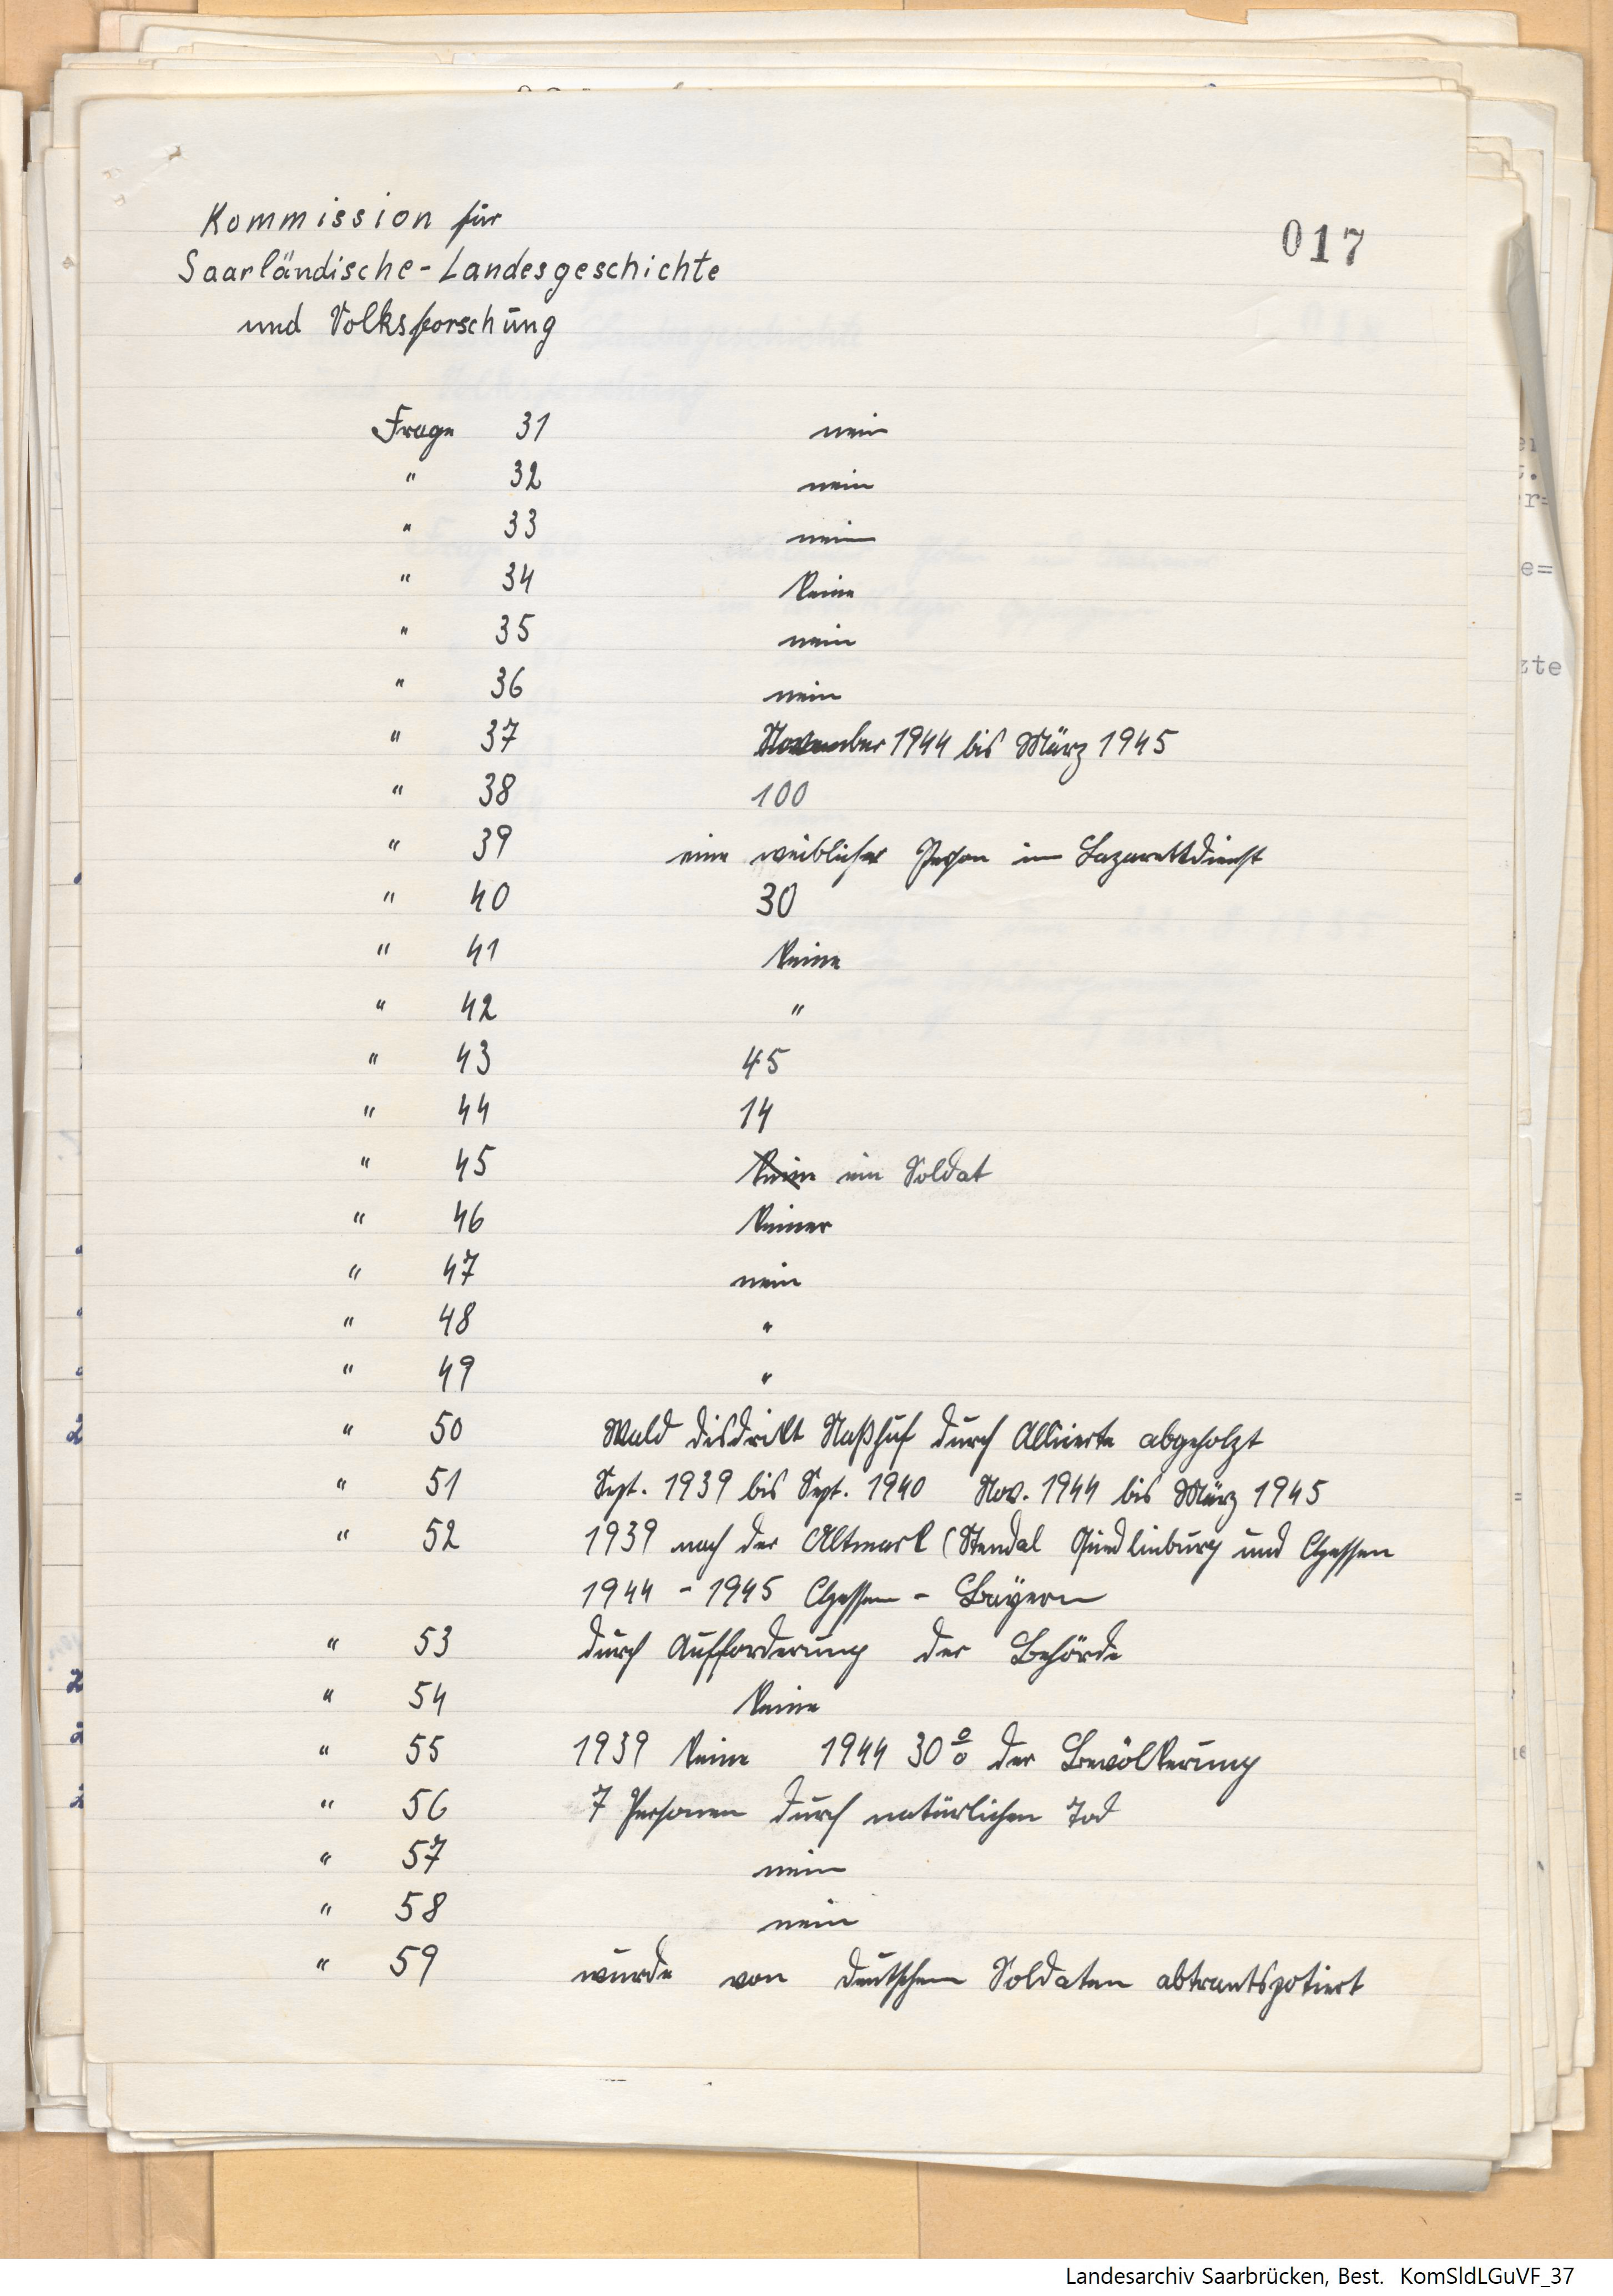 Kommission für
017
Saarländische-Landesgeschichte
und Volksforschung
Frage 31 nein
" 32 nein
" 33 nein
" 34 keine
" 35 nein
" 36 nein
" 37 November 1944 bis März 1945
" 38 100
" 39 eine weibliche Person im Lazarettdienst
" 40 30
" 41 keine
" 42 "
" 43 45
" 44 14
" 45 ein Soldat
" 46 keiner
" 47 nein
" 48 "
" 49 "
" 50 Wald disdrikt Naßhuf durch Alliierte abgeholzt
" 51 Sept. 1939 bis Sept. 1940 Nov. 1944 bis März 1945
" 52 1939 nach der Altmark (Stendal Quedlinburg und Hessen
1944 - 1945 Hessen - Bayern
" 53 durch Aufforderung der Behörde
" 54 keine
" 55 1939 keine 1944 30 % der Bevölkerung
" 56 7 Personen durch natürlichen Tod
" 57 nein
" 58 nein
" 59 wurde von deutschen Soldaten abtrantspotiert
Landesarchiv Saarbrücken, Best. KomSldLGuVF_37